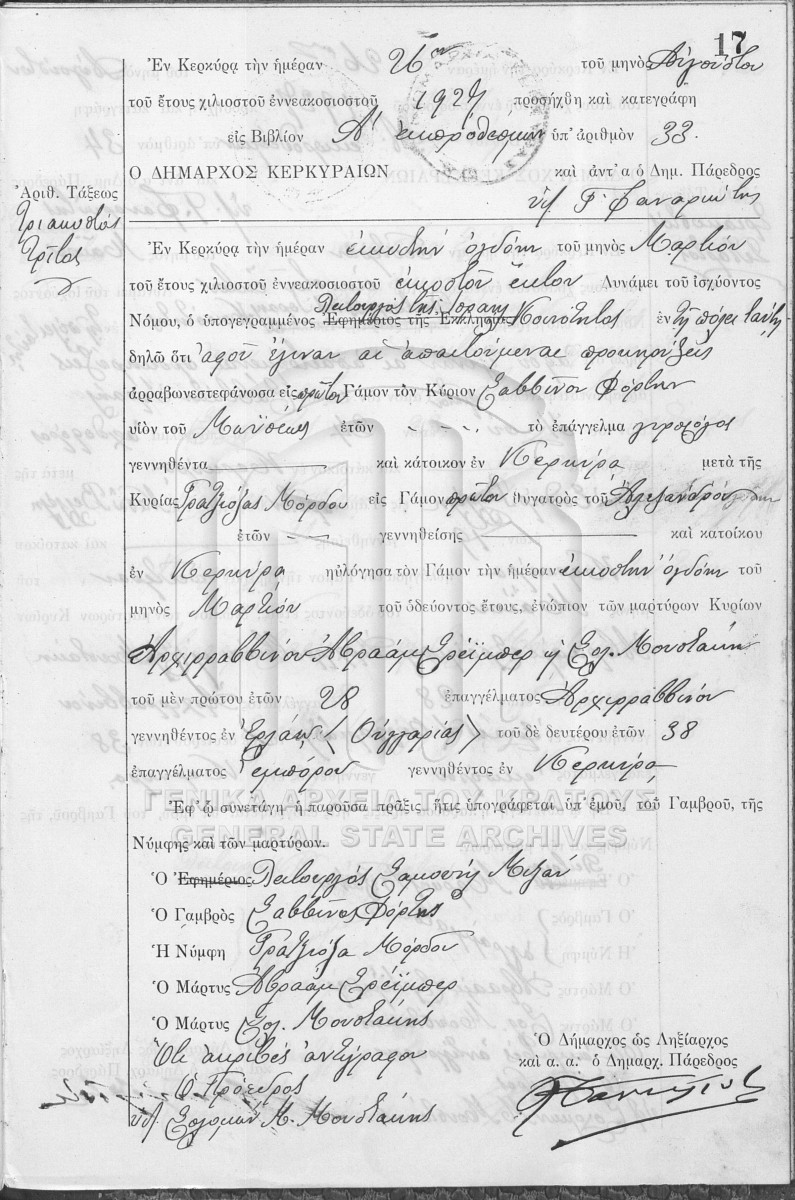 17
Ἐν Κερκύρᾳ τὴν ἡμέραν 26ην τοῦ μηνὸς Αὐγούστου
τοῦ ἔτους χιλιοστοῦ ἐννεακοσιοστοῦ 1927 προσήχθη καὶ κατεγράφη
εἰς Βιβλίον Α' ἐκπροθέσμων ὑπ' ἀριθμὸν 33.
Ο ΔΗΜΑΡΧΟΣ ΚΕΡΚΥΡΑΙΩΝ καὶ ἀντ' α ὁ Δημ. Πάρεδρος
Ἀριθ. Τάξεως
Τριακοστὸς
Τρίτος
Ἐν Κερκύρᾳ τὴν ἡμέραν εἰκοστὴν ὀγδόην τοῦ μηνὸς Μαρτίου
τοῦ ἔτους χιλιοστοῦ ἐννεακοσιοστοῦ εἰκοστοῦ ἕκτου Δυνάμει τοῦ ἰσχύοντος
Νόμου, ὁ ὑπογεγραμμένος Ἐφημέριος τῆς Ἐκκλησίας Λειτουργὸς τῆς Ἰσραηλ. Κοινότητος ἐν τῇ πόλει ταύτῃ
δηλῶ ὅτι ἀφοῦ ἔγιναν αἱ ἀπαιτούμεναι προκηρύξεις
ἀρραβωνεστεφάνωσα εἰς πρῶτον Γάμον τὸν Κύριον Σαββῖνον Φόρτην
υἱὸν τοῦ Ματθαίου ἐτῶν - - - τὸ ἐπάγγελμα
γεννηθέντα καὶ κάτοικον ἐν Κερκύρᾳ μετὰ τῆς
Κυρίας Γρατζιόζας Μόρδου εἰς Γάμον πρῶτον θυγατρὸς τοῦ Ἀλεξάνδρου
ἐτῶν - - γεννηθείσης καὶ κατοίκου
ἐν Κερκύρᾳ ηὐλόγησα τὸν Γάμον τὴν ἡμέραν εἰκοστὴν ὀγδόην τοῦ
μηνὸς Μαρτίου τοῦ ὁδεύοντος ἔτους, ἐνώπιον τῶν μαρτύρων Κυρίων
Ἀρχιρραββίνου Ἀβραὰμ Σρέϊμπερ ἢ Σολ. Μουστάκη
τοῦ μὲν πρώτου ἐτῶν 28 ἐπαγγέλματος Ἀρχιρραββίνου
γεννηθέντος ἐν Ἐρλάου (Οὑγγαρίας) τοῦ δὲ δευτέρου ἐτῶν 38
ἐπαγγέλματος Ἐμπόρου γεννηθέντος ἐν Κερκύρᾳ
ΓΕΝΙΚΑ ΑΡΧΕΙΑ ΤΟΥ ΚΡΑΤΟΥΣ
Ἐφ' ᾧ συνετάγη ἡ παροῦσα πρᾶξις ἥτις ὑπογράφεται ὑπ' ἐμοῦ, τοῦ Γαμβροῦ, τῆς
GENERAL STATE ARCHIVES
Νύμφης καὶ τῶν μαρτύρων.
Ὁ Ἐφημέριος Λειτουργὸς Σαμουὴλ Μιζάν
Ὁ Γαμβρὸς Σαββῖνος Φόρτης
Ἡ Νύμφη Γρατζιόζα Μόρδου
Ὁ Μάρτυς Ἀβραὰμ Σρέϊμπερ
Ὁ Μάρτυς Σολ. Μουστάκης
Ὅτι ἀκριβὲς ἀντίγραφον
Ὁ Πρόεδρος
Σολομὼν Μ. Μουστάκης
Ὁ Δήμαρχος ὡς Ληξίαρχος
καὶ α. α. ὁ Δημαρχ. Πάρεδρος